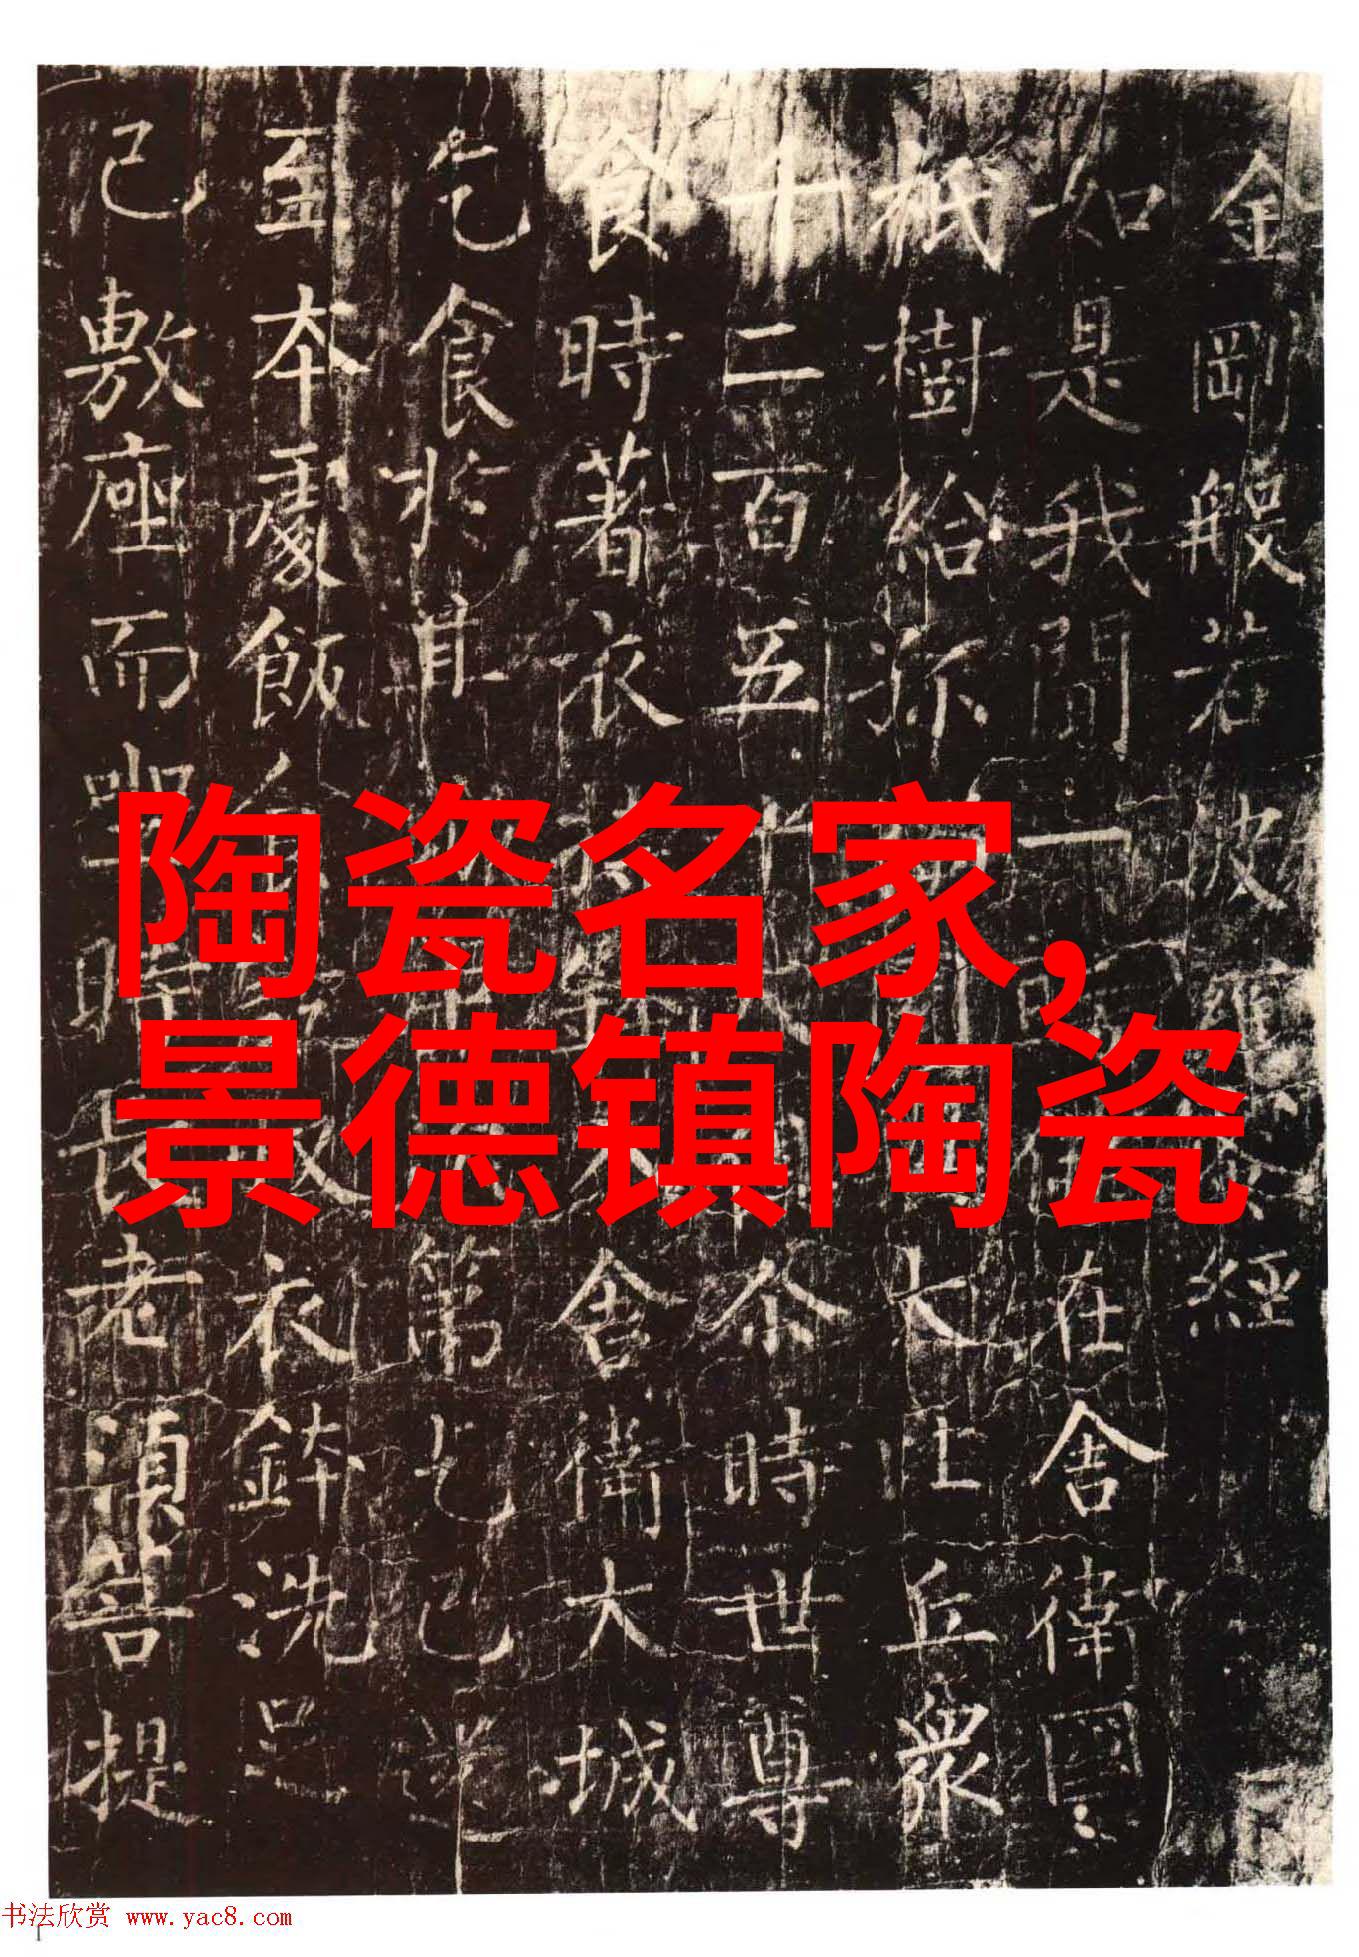 金剛般若波羅蜜經
如是我聞一時佛在舍衛國
祇樹給孤獨園與大比丘衆
十二百五十人俱尒時世尊
食時著衣持鉢入舍衛大城
乞食於其城中次第乞已還
至本處飯食訖收衣鉢洗足
已敷座而坐時長老湏菩提
陶瓷名家,
景德镇陶瓷
书法欣赏 www.yac8.com